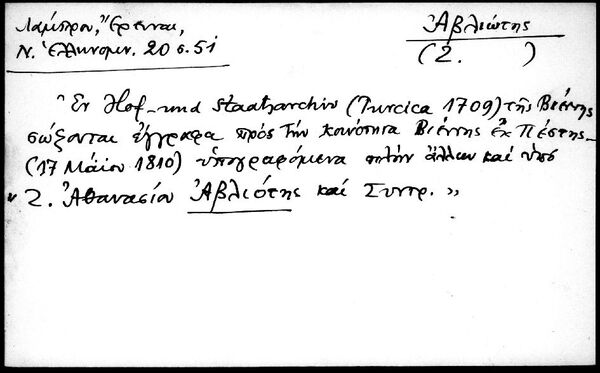 Λάμπρου, Ἔρευναι,
Ν. Ἑλληνομν. 20 σ. 51
Ἀβλιώτης
(2. )
Ἐν Hof-und Staatsarchiv (Turcica 1709) τῆς Βιέννης
σώζονται ἔγγραφα πρὸς τὴν κοινότητα Βιέννης ἐκ Πέστης
(17 Μαΐου 1810) ὑπογραφόμενα πλὴν ἄλλων καὶ ὑπὸ
" 2. Ἀθανασίου Ἀβλιότης καὶ Συντρ. "